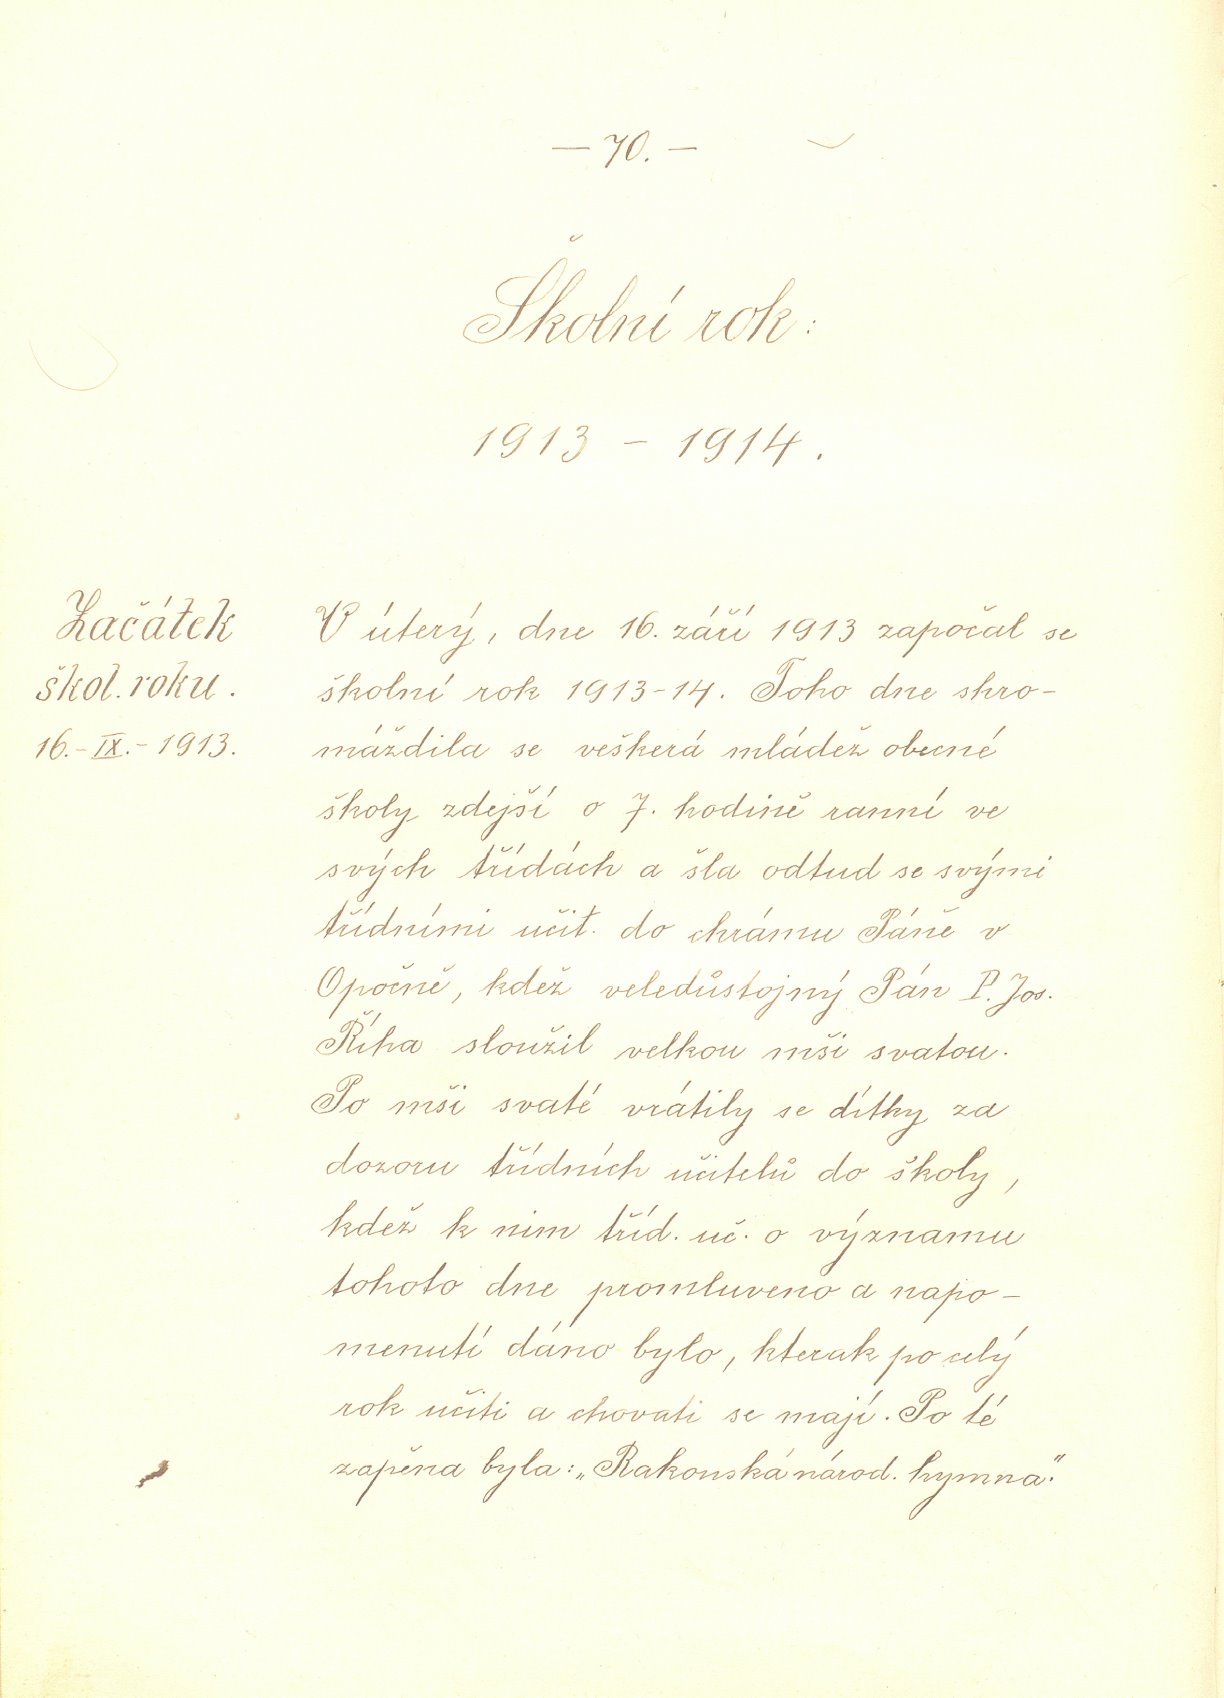 — 70. —
Školní rok:
1913 – 1914.
Začátek
škol. roku.
16.– IX.– 1913.
V úterý, dne 16. září 1913 započal se
školní rok 1913-14. Toho dne shro-
máždila se veškerá mládež obecné
školy zdejší o 7. hodině ranní ve
svých třídách a šla odtud se svými
třídními učit. do chrámu Páně v
Opočně, kdež veledůstojný Pán P. Jos.
Říha sloužil velkou mši svatou.
Po mši svaté vrátily se dítky za
dozoru třídních učitelů do školy,
kdež k nim tříd. uč. o významu
tohoto dne promluveno a napo-
menutí dáno bylo, kterak po celý
rok učiti a chovati se mají. Po té
zapěna byla: „Rakouská národ. hymna."